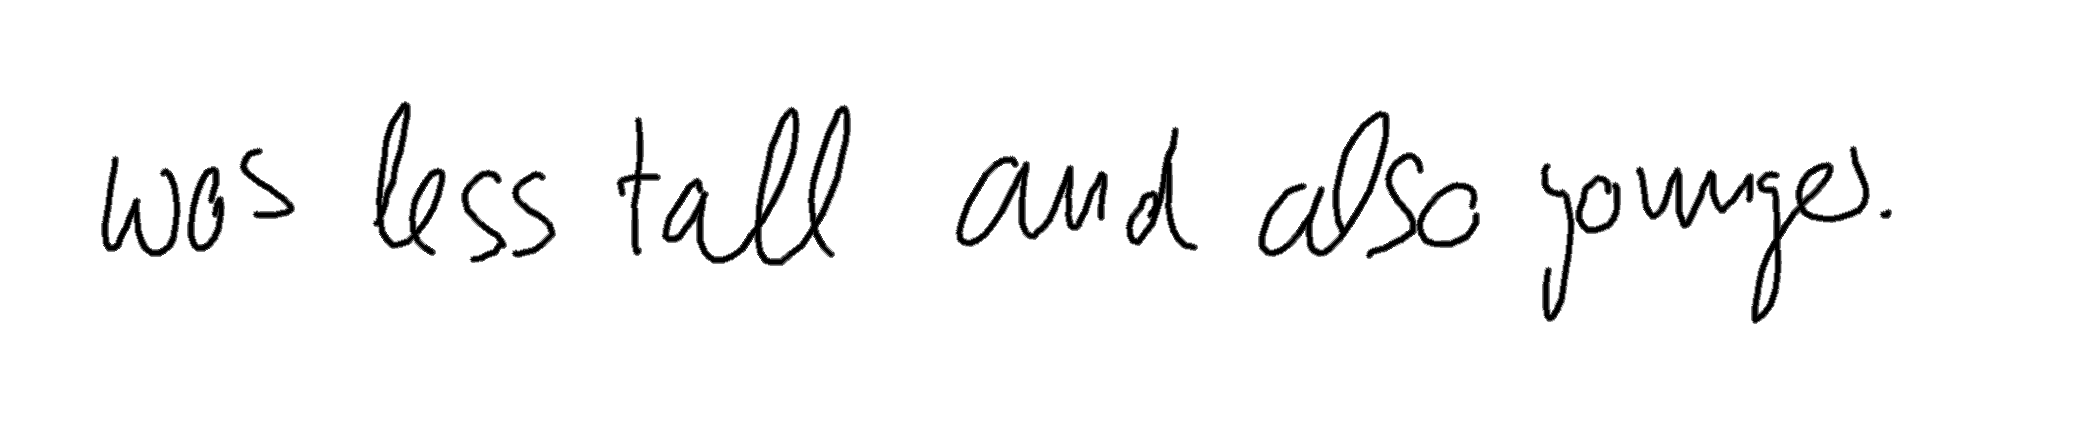 was less tall and also younger.